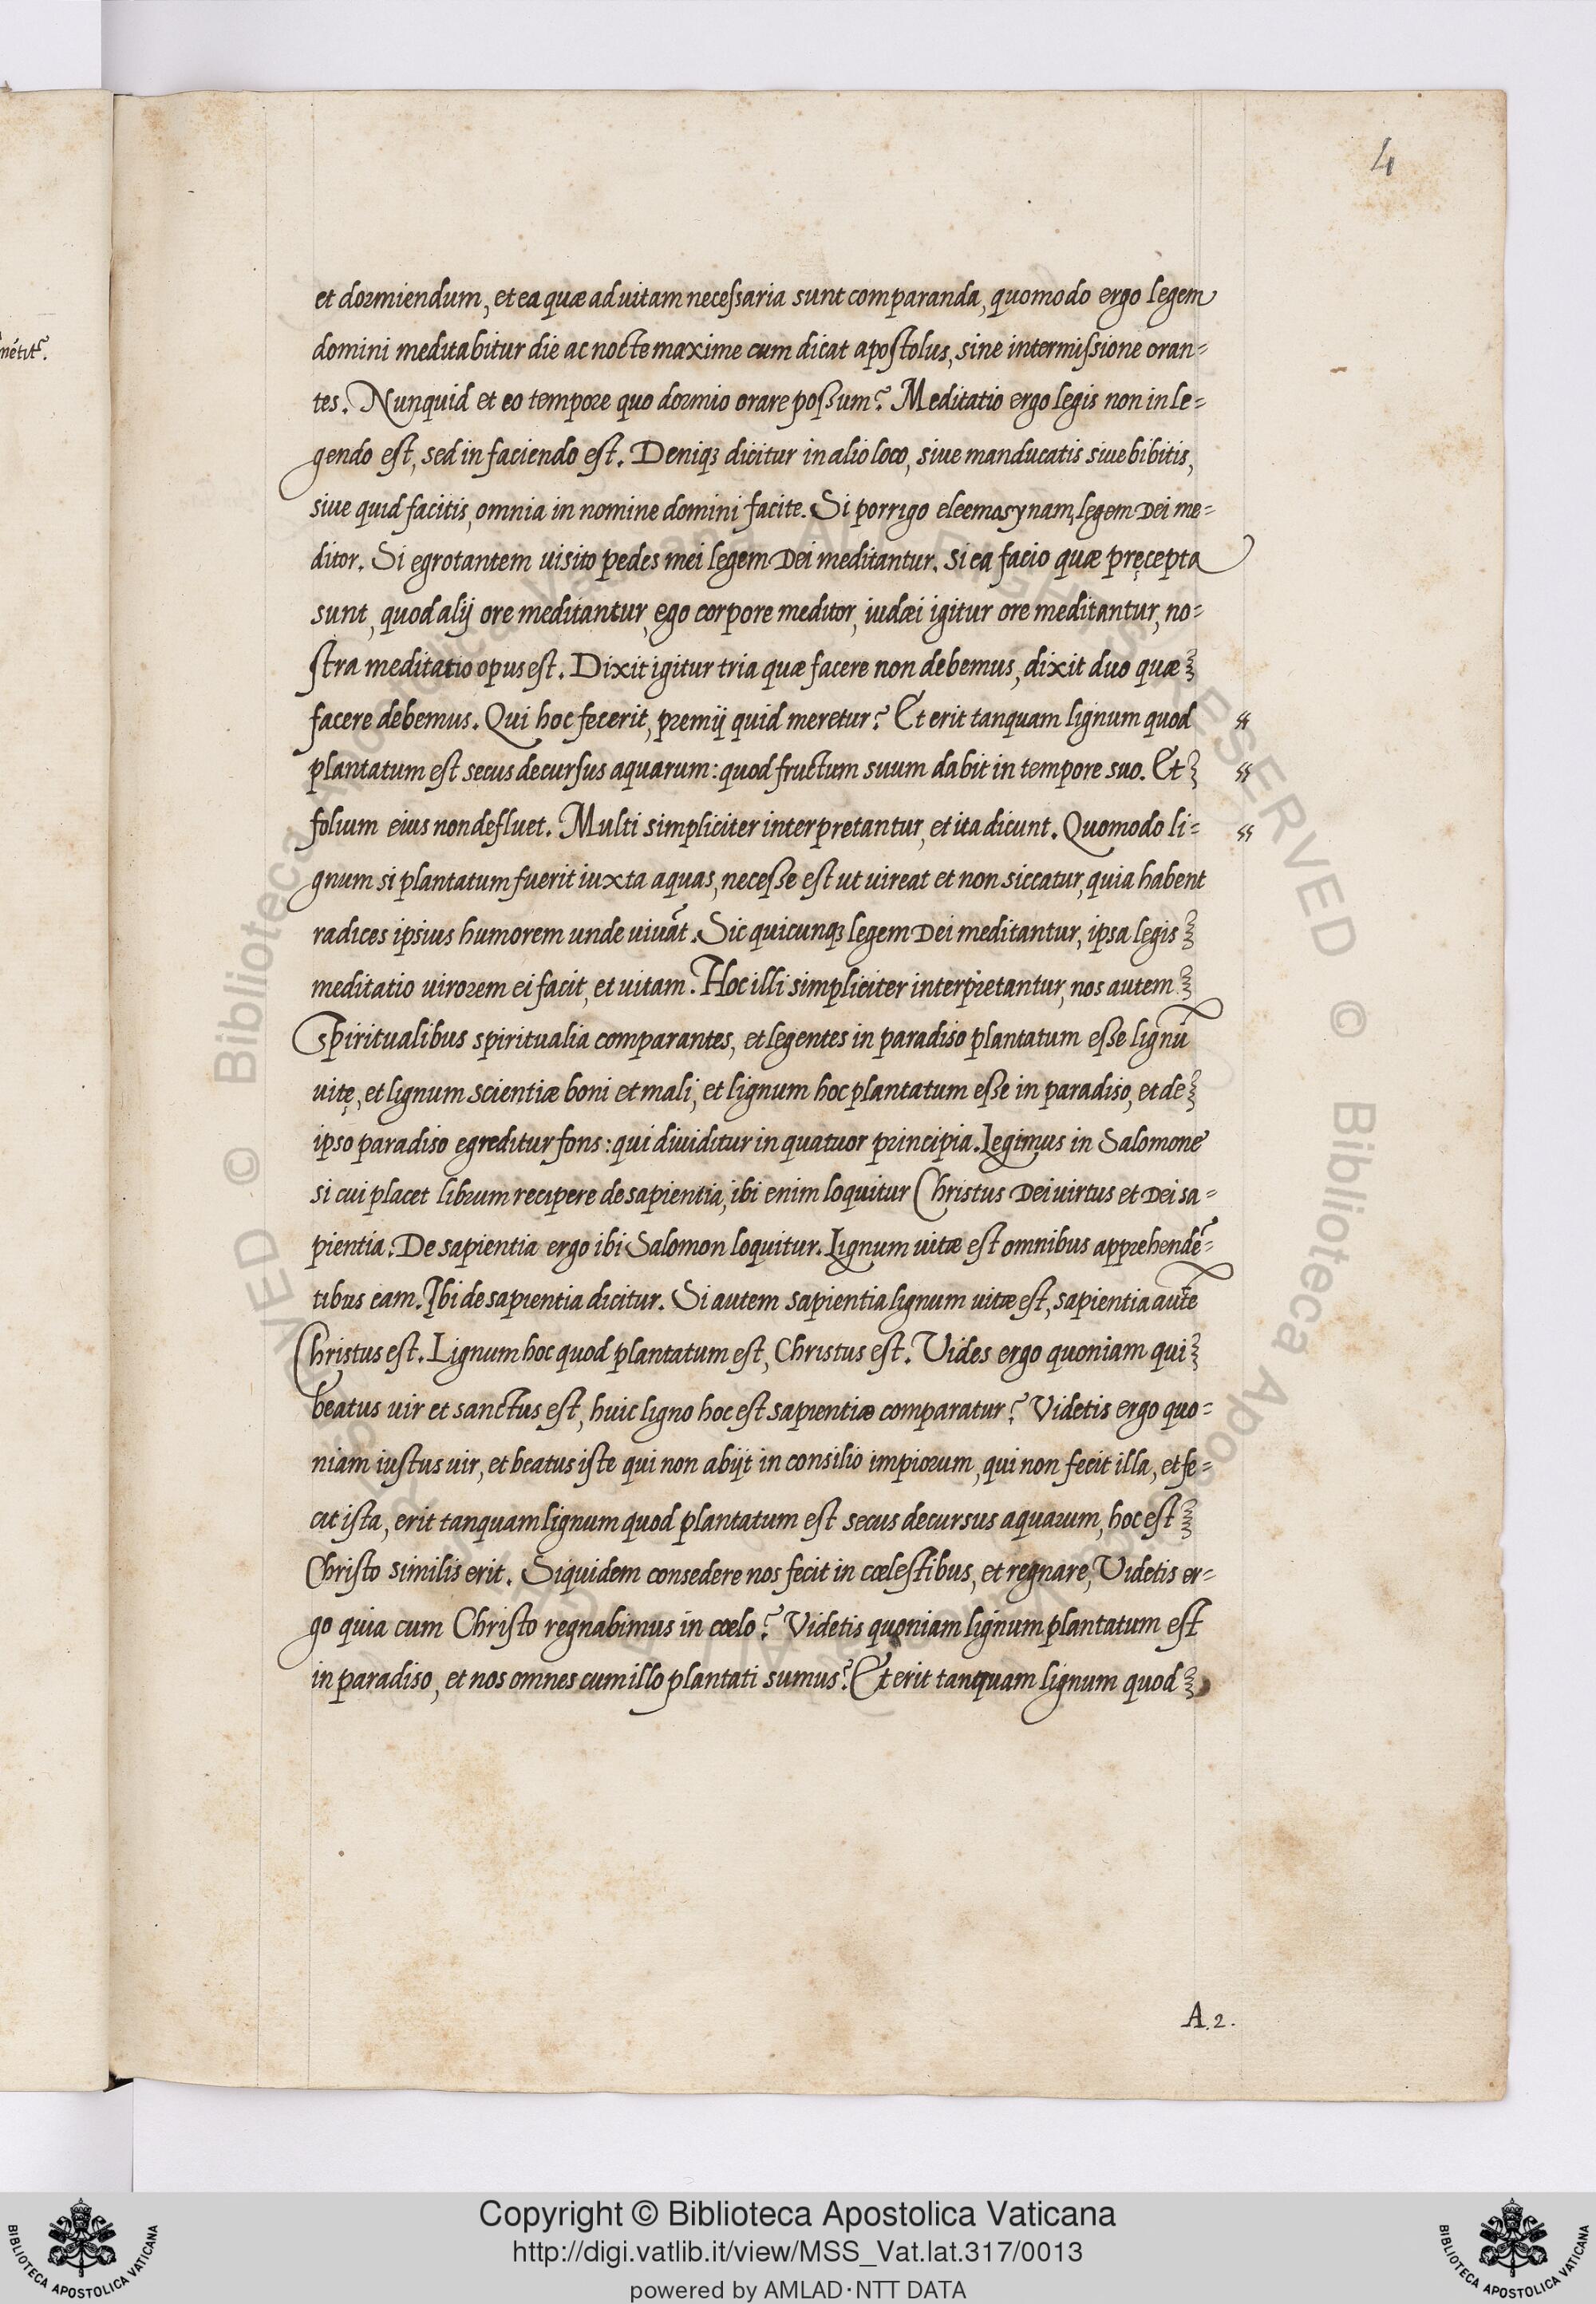 4
métit᷒.
et dormiendum, et ea quæ ad uitam necessaria sunt comparanda, quomodo ergo legem
domini meditabitur die ac nocte maxime cum dicat apostolus, sine intermissione oran=
tes. Nunquid et eo tempore quo dormio orare possum? Meditatio ergo legis non in le=
gendo est, sed in faciendo est. Deniqꝫ dicitur in alio loco, siue manducatis siue bibitis,
siue quid facitis, omnia in nomine domini facite. Si porrigo eleemosynam, legem Dei me=
ditor. Si egrotantem uisito pedes mei legem Dei meditantur. Si ea facio quæ pręcepta
sunt, quod alij ore meditantur, ego corpore meditor, iudæi igitur ore meditantur, no=
stra meditatio opus est. Dixit igitur tria quæ facere non debemus, dixit duo quæ
facere debemus. Qui hoc fecerit, premij quid meretur? Et erit tanquam lignum quod
plantatum est secus decursus aquarum: quod fructum suum dabit in tempore suo. Et
folium eius non defluet. Multi simpliciter interpretantur, et ita dicunt. Quomodo li=
gnum si plantatum fuerit iuxta aquas, necesse est ut uireat et non siccatur, quia habent
radices ipsius humorem unde uiuāt. Sic quicunqꝫ legem Dei meditantur, ipsa legis
meditatio uirorem ei facit, et uitam. Hoc illi simpliciter interpretantur, nos autem
Spiritualibus spiritualia comparantes, et legentes in paradiso plantatum esse lignū
uitę, et lignum scientiæ boni et mali, et lignum hoc plantatum esse in paradiso, et de
ipso paradiso egreditur fons: qui diuiditur in quatuor principia. Legimus in Salomone
si cui placet librum recipere de sapientia, ibi enim loquitur Christus Dei uirtus et Dei sa=
pientia. De sapientia ergo ibi Salomon loquitur. Lignum uitæ est omnibus apprehendē=
tibus eam. Ibi de sapientia dicitur. Si autem sapientia lignum uitæ est, sapientia autē
Christus est. Lignum hoc quod plantatum est, Christus est. Vides ergo quoniam qui
beatus uir et sanctus est, huic ligno hoc est sapientiæ comparatur? Videtis ergo quo=
niam iustus uir, et beatus iste qui non abijt in consilio impiorum, qui non fecit illa, et fe=
cit ista, erit tanquam lignum quod plantatum est secus decursus aquarum, hoc est
Christo similis erit. Siquidem consedere nos fecit in cœlestibus, et regnare, Videtis er=
go quia cum Christo regnabimus in cœlo? Videtis quoniam lignum plantatum est
in paradiso, et nos omnes cum illo plantati sumus? Et erit tanquam lignum quod
A. 2.
Copyright © Biblioteca Apostolica Vaticana
http://digi.vatlib.it/view/MSS_Vat.lat.317/0013
powered by AMLAD·NTT DATA
BIBLIOTECA APOSTOLICA VATICANA
BIBLIOTECA APOSTOLICA VATICANA